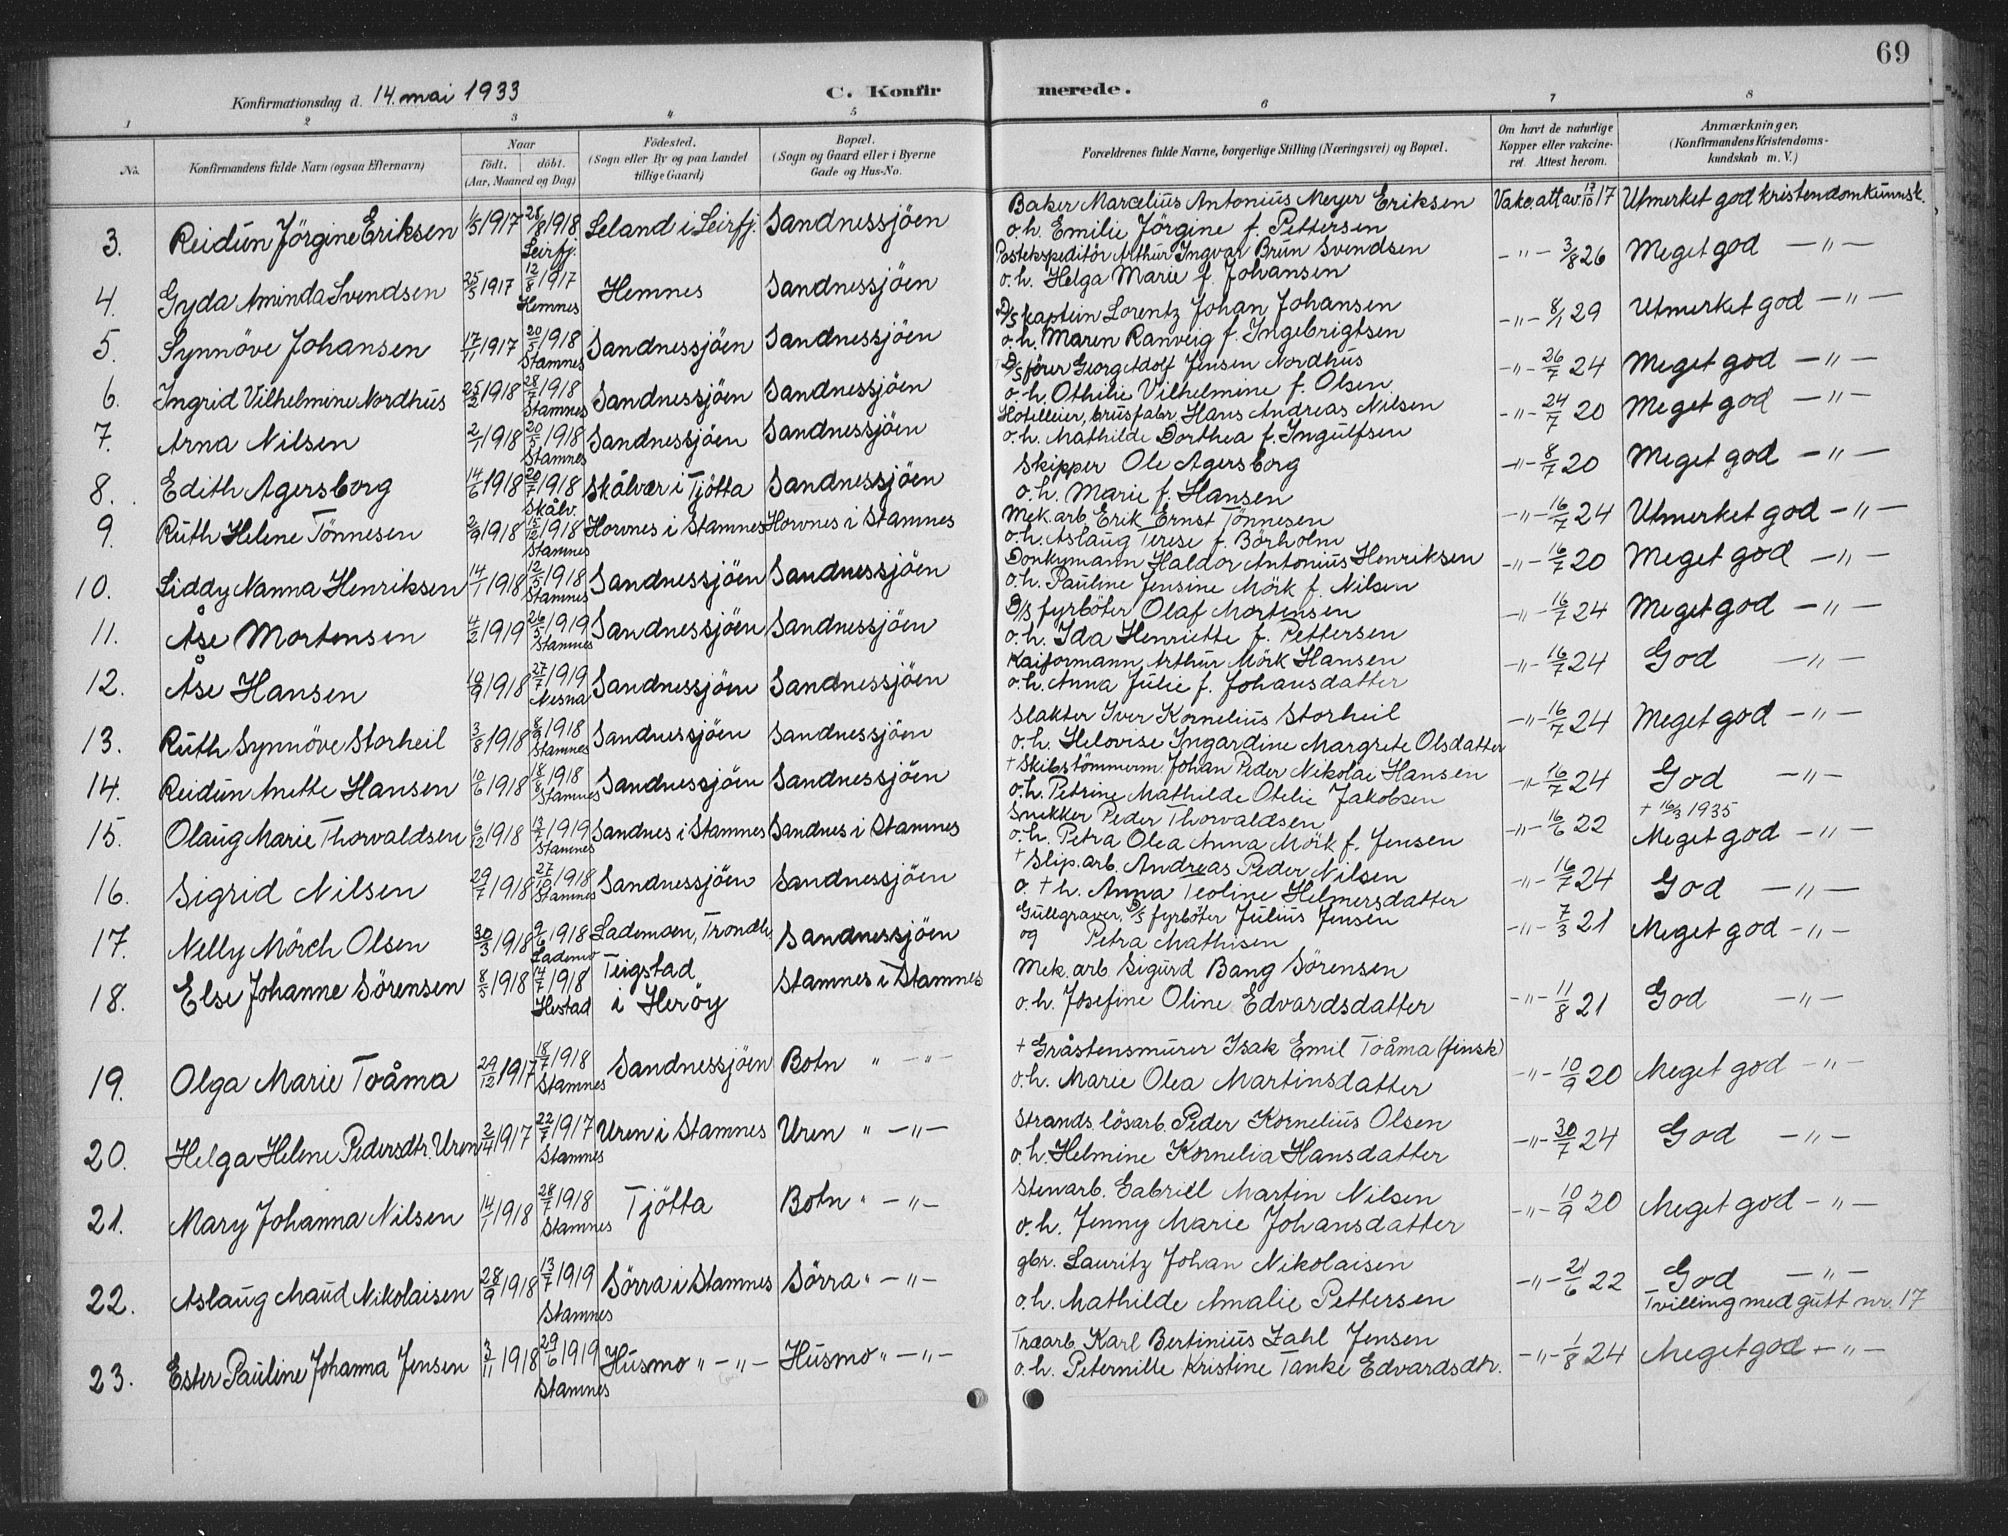 69
Konfirmationsdag d. 14. mai 1933 C. Konfirmerede.
1 2 3 4 5 6 7 8
No. Konfirmandens fulde Navn (ogsaa Efternavn) Naar født. døbt. (Aar, Maaned og Dag) Fødested. (Sogn eller By og paa Landet tillige Gaard) Bopæl. (Sogn og Gaard eller i Byerne Gade og Hus-No. Forældrenes fulde Navne, borgerlige Stilling (Næringsvei) og Bopæl. Om havt de naturlige Kopper eller vakcineret. Attest herom. Anmærkninger. (Konfirmandens Kristendomskundskab m. V.)
3. Reidun Jörgine Eriksen 1/5 1917 28/8 1918 Leirfj. Leland i Leirfj. Sandnessjöen Baker Marcelius Antonius Meyer Eriksen Vakc. att av 17/10 17 Utmerket god kristendomkunnsk.
o.h. Emilie Jörgine f. Pettersen
4. Gyda Aminda Svendsen 25/5 1917 12/8 1917 Hemnes Hemnes Sandnessjöen Postekspeditör Arthur Ingvar Brun Svendsen -"- 3/8 26 Meget god -"-
o.h. Helga Marie f. Johansen
5. Synnöve Johansen 17/11 1917 20/5 1918 Stamnes Sandnessjöen Sandnessjöen D/S kaptein Lorentz Johan Johansen -"- 8/1 29 Utmerket god -"-
o.h. Maren Ranveig f. Ingebrigtsen
6. Ingrid Vilhelmine Nordhus 25/2 1918 28/7 1918 Stamnes Sandnessjöen Sandnessjöen D/S förer Georg Adolf Jensen Nordhus -"- 26/7 24 Meget god -"-
o.h. Othilie Vilhelmine f. Olsen
7. Arna Nilsen 2/1 1918 20/5 1918 Stamnes Sandnessjöen Sandnessjöen Hotelleier, brusfabr. Hans Andreas Nilsen -"- 24/7 20 Meget god -"-
o.h. Mathilde Dorthea f. Ingulfsen
8. Edith Agersborg 14/6 1918 20/7 1918 Skålv. Skålvær i Tjötta Sandnessjöen Skipper Ole Agersborg -"- 8/7 20 Meget god -"-
o.h. Marie f. Hansen
9. Ruth Helene Tönnesen 2/9 1918 15/12 1918 Stamnes Horvnes i Stamnes Horvnes i Stamnes Mek. arb. Erik Ernst Tönnesen -"- 16/7 24 Utmerket god -"-
o.h. Aslaug Terese f. Börholm
10. Liddy Nanna Henriksen 14/1 1918 12/5 1918 Stamnes Sandnessjöen Sandnessjöen Donkymann Haldor Antonius Henriksen -"- 16/7 20 Meget god -"-
o.h. Pauline Jensine Mörk f. Nilsen
11. Åse Mortensen 4/2 1919 26/5 1919 Stamnes Sandnessjöen Sandnessjöen D/S fyrböter Olaf Mortensen -"- 16/7 24 Meget god -"-
o.h. Ida Henriette f. Pettersen
12. Åse Hansen 10/9 1918 27/7 1919 Nesna Sandnessjöen Sandnessjöen Kaiformann Arthur Mörk Hansen -"- 16/7 24 God -"-
o.h. Anna Julie f. Johansdatter
13. Ruth Synnöve Storheil 3/8 1918 8/9 1918 Stamnes Sandnessjöen Sandnessjöen Slakter Iver Kornelius Storheil -"- 16/7 24 Meget god -"-
o.h. Helovise Ingardine Margrete Olsdatter
14. Reidun Anette Hansen 10/6 1918 18/8 1918 Stamnes Sandnessjöen Sandnessjöen + Skibstömmerm. Johan Peder Nikolai Hansen -"- 16/7 24 God -"-
o.h. Petrine Mathilde Otelie Jakobsen
15. Olaug Marie Thorvaldsen 6/12 1918 13/7 1919 Stamnes Sandnes i Stamnes Sandnes i Stamnes Snekker Peder Thorvaldsen -"- 16/6 22 + 16/3 1935 Meget god -"-
o.h. Petra Olea Anna Mörk f. Jensen
16. Sigrid Nilsen 29/7 1918 27/10 1918 Stamnes Sandnessjöen Sandnessjöen + Slip. arb. Andreas Peder Nilsen -"- 16/7 24 God -"-
o. + h. Anna Teoline Helmersdatter
17. Nelly Mörch Olsen 30/3 1918 9/6 1918 Lademo Lademoen, Trondh. Sandnessjöen Gullgraver, D/S fyrböter Julius Jensen -"- 7/3 21 Meget god -"-
og Petra Mathisen
18. Else Johanne Sörensen 8/5 1918 14/7 1918 Hestad Teigstad i Heröy Stamnes i Stamnes Mek. arb. Sigurd Bang Sörensen -"- 11/8 21 God -"-
o.h. Josefine Oline Edvardsdatter
19. Olga Marie Toåma 29/12 1917 18/7 1918 Stamnes Sandnessjöen Botn " -"- + Gråstensmurer Isak Emil Toåma (finsk) -"- 10/9 20 Meget god -"-
o.h. Marie Olea Martinsdatter
20. Helga Helene Pedersdtr. Uren 2/4 1917 22/7 1917 Stamnes Uren i Stamnes Uren " -"- Strands. lösarb. Peder Kornelius Olsen -"- 30/7 24 God -"-
o.h. Helmine Kornelia Hansdatter
21. Mary Johanna Nilsen 14/1 1918 28/7 1918 Stamnes Tjötta Botn " -"- Stenarb. Gabriell Martin Nilsen -"- 10/9 20 Meget god -"-
o.h. Jenny Marie Johansdatter
22. Aslaug Maud Nikolaisen 28/9 1918 13/7 1919 Stamnes Sörra i Stamnes Sörra " -"- gbr. Lauritz Johan Nikolaisen -"- 21/6 22 God -"-
o.h. Mathilde Amalie Pettersen Tvilling med gutt nr. 17
23. Ester Pauline Johanna Jensen 3/11 1918 29/6 1919 Stamnes Husmo " -"- Husmo " -"- Træarb. Karl Bertinius Zahl Jensen -"- 1/8 24 Meget god -"-
o.h. Peternille Kristine Tanke Edvardsdtr.